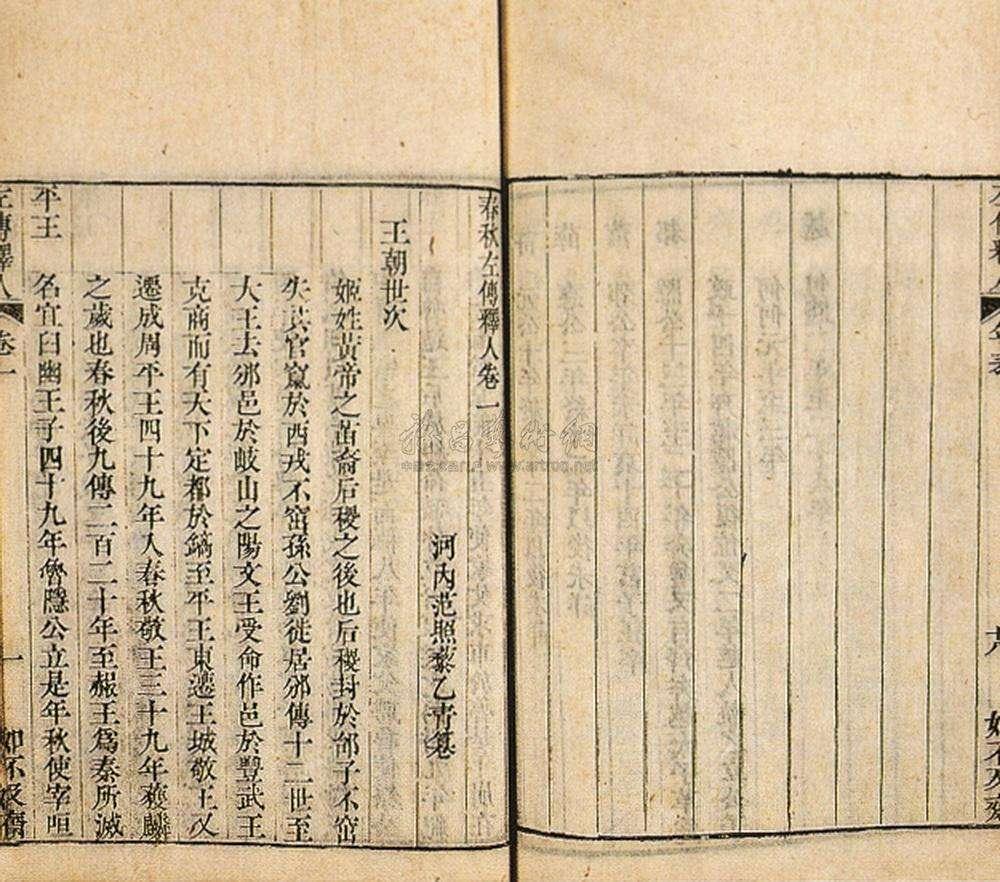 春秋左傳釋人卷一
河內范照藜乙青纂
王朝世次
姬姓黃帝之苗裔后稷之後也后稷封於邰子不窋
失其官竄於西戎不窋孫公劉徙居邠傳十二世至
大王去邠邑於岐山之陽文王受命作邑於豐武王
克商而有天下定都於鎬至平王東遷王城敬王又
遷成周平王四十九年入春秋敬王三十九年獲麟
之歲也春秋後九傳二百二十年至赧王爲秦所滅
平王
名宜臼幽王子四十九年魯隱公立是年秋使宰咺
左傳釋人
卷一
一
如不及齋